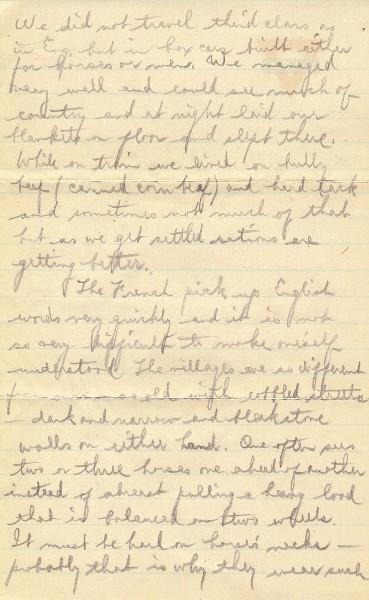 We did not travel third class as
in Eng. but in box cars built either
for horses or men. We managed
very well and could see much of
country and at night laid our
blankets on floor and slept there.
While on train we lived on bully
beef (canned corn beef) and hard tack
and sometimes not much of that
but as we get settled rations are
getting better.
The French pick up English
words very quickly and it is not
so very difficult to make oneself
understood. The villages are so different
from ours - so old with cobbled streets
- dark and narrow and bleak stone
walls on either hand. One often sees
two or three horses one ahead of another
instead of abreast pulling a heavy load
that is balanced on two wheels.
It must be hard on horse's necks -
probably that is why they wear such